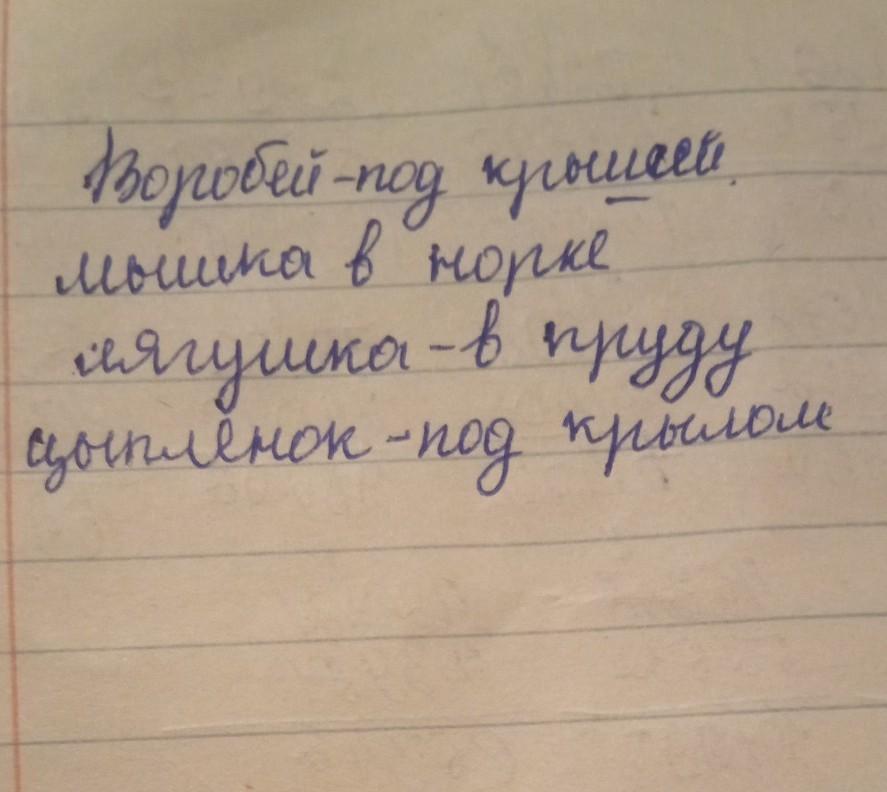 Воробей-под крышей
мышка в норке
лягушка-в пруду
цыпленок-под крылом